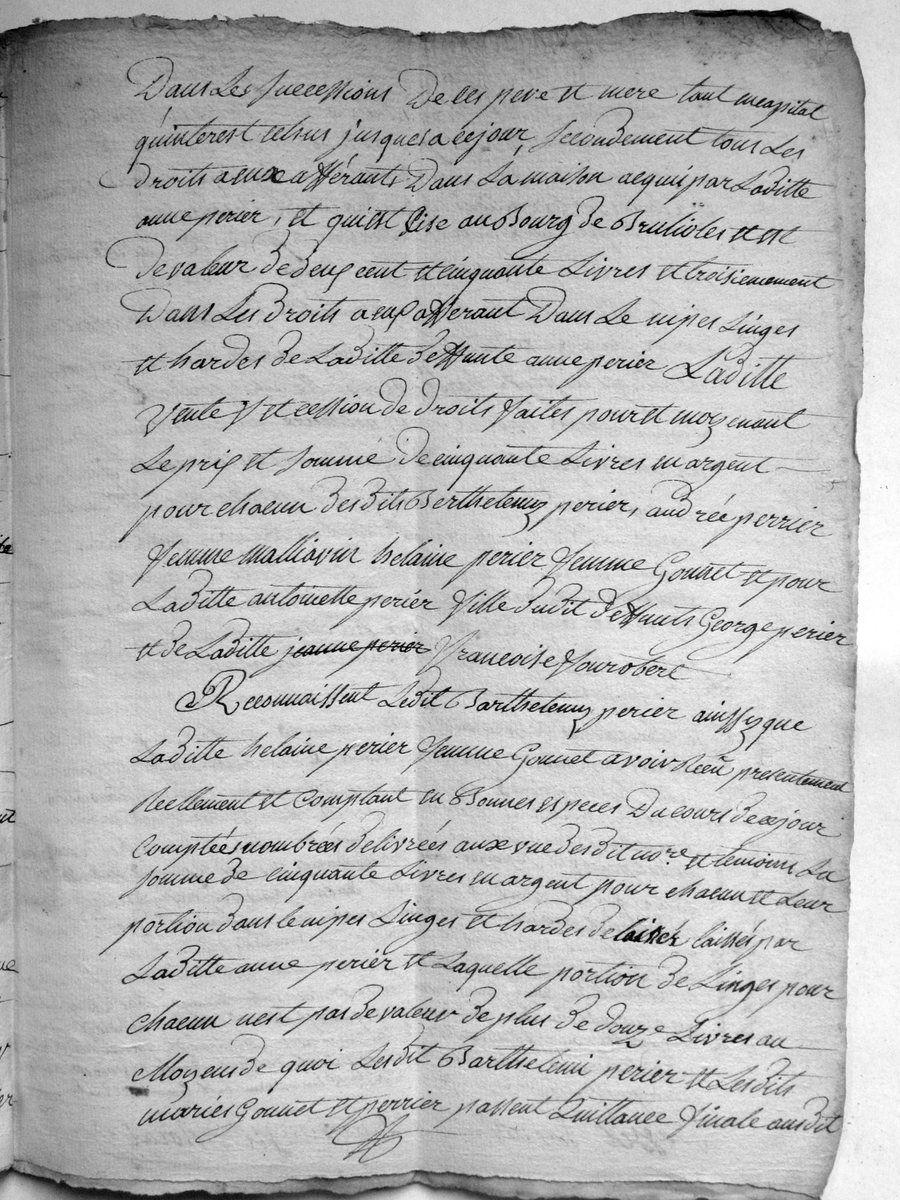 Dans Les successions De ces pere et mere tant en capital
qu'interest Echus jusques a ce jour, secondement tous Les
droits a eux afférants Dans La maison acquis par Laditte
anne perier, et qui est size au Bourg de Brulioles et est
De valeur de deux cent et cinquante Livres et troisiemement
Dans Les Droits a eux afferant Dans Le nipes Linges
et hardes de Laditte deffunte anne perier Laditte
vente et cession de droits faites pour et moyenant
Le prix et somme de cinquante Livres en argent
pour chacun desdits Barthelemy perier, andrée perrier
femme malliavin helaine perier femme Gonnet et pour
Laditte antoinette perier fille dudit deffunts George perier
et de Laditte jeanne perier francoise fourobert
Reconnaissent Ledit Barthelemy perier ainssy que
Laditte helaine perier femme Gonnet avoir Receu presentement
Reellement et comptant en Bonnes especes Du cours de ce jour
comptées nombrées delivrées aux vue desdit nore et temoins La
somme de cinquante Livres en argent pour chacun et Leur
portion dans le nipes Linges et hardes de laissés par
Laditte anne perier et Laquelle portion de Linges pour
chacun n'est pas de valeur de plus de douze Livres au
Moyens de quoi Lesdit Barthelemi perier et Lesdits
mariés Gonnet et perrier passent Quittance finale audit